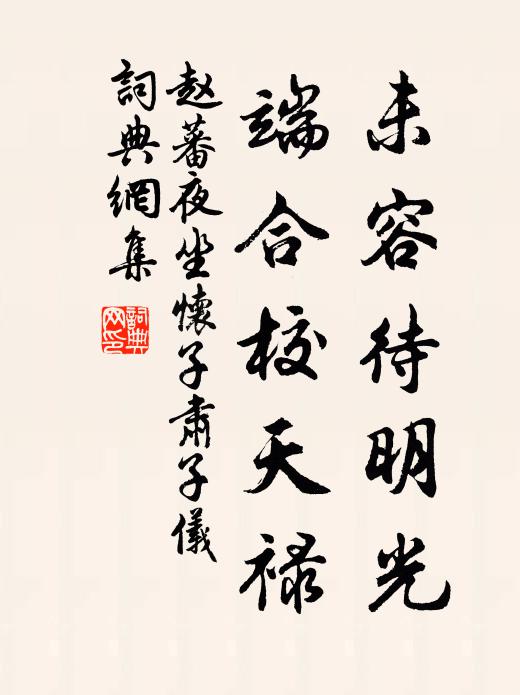 未容待明光
端合校天禄
赵蕃夜坐懷子肅子儀
詞典網集
詞典网印